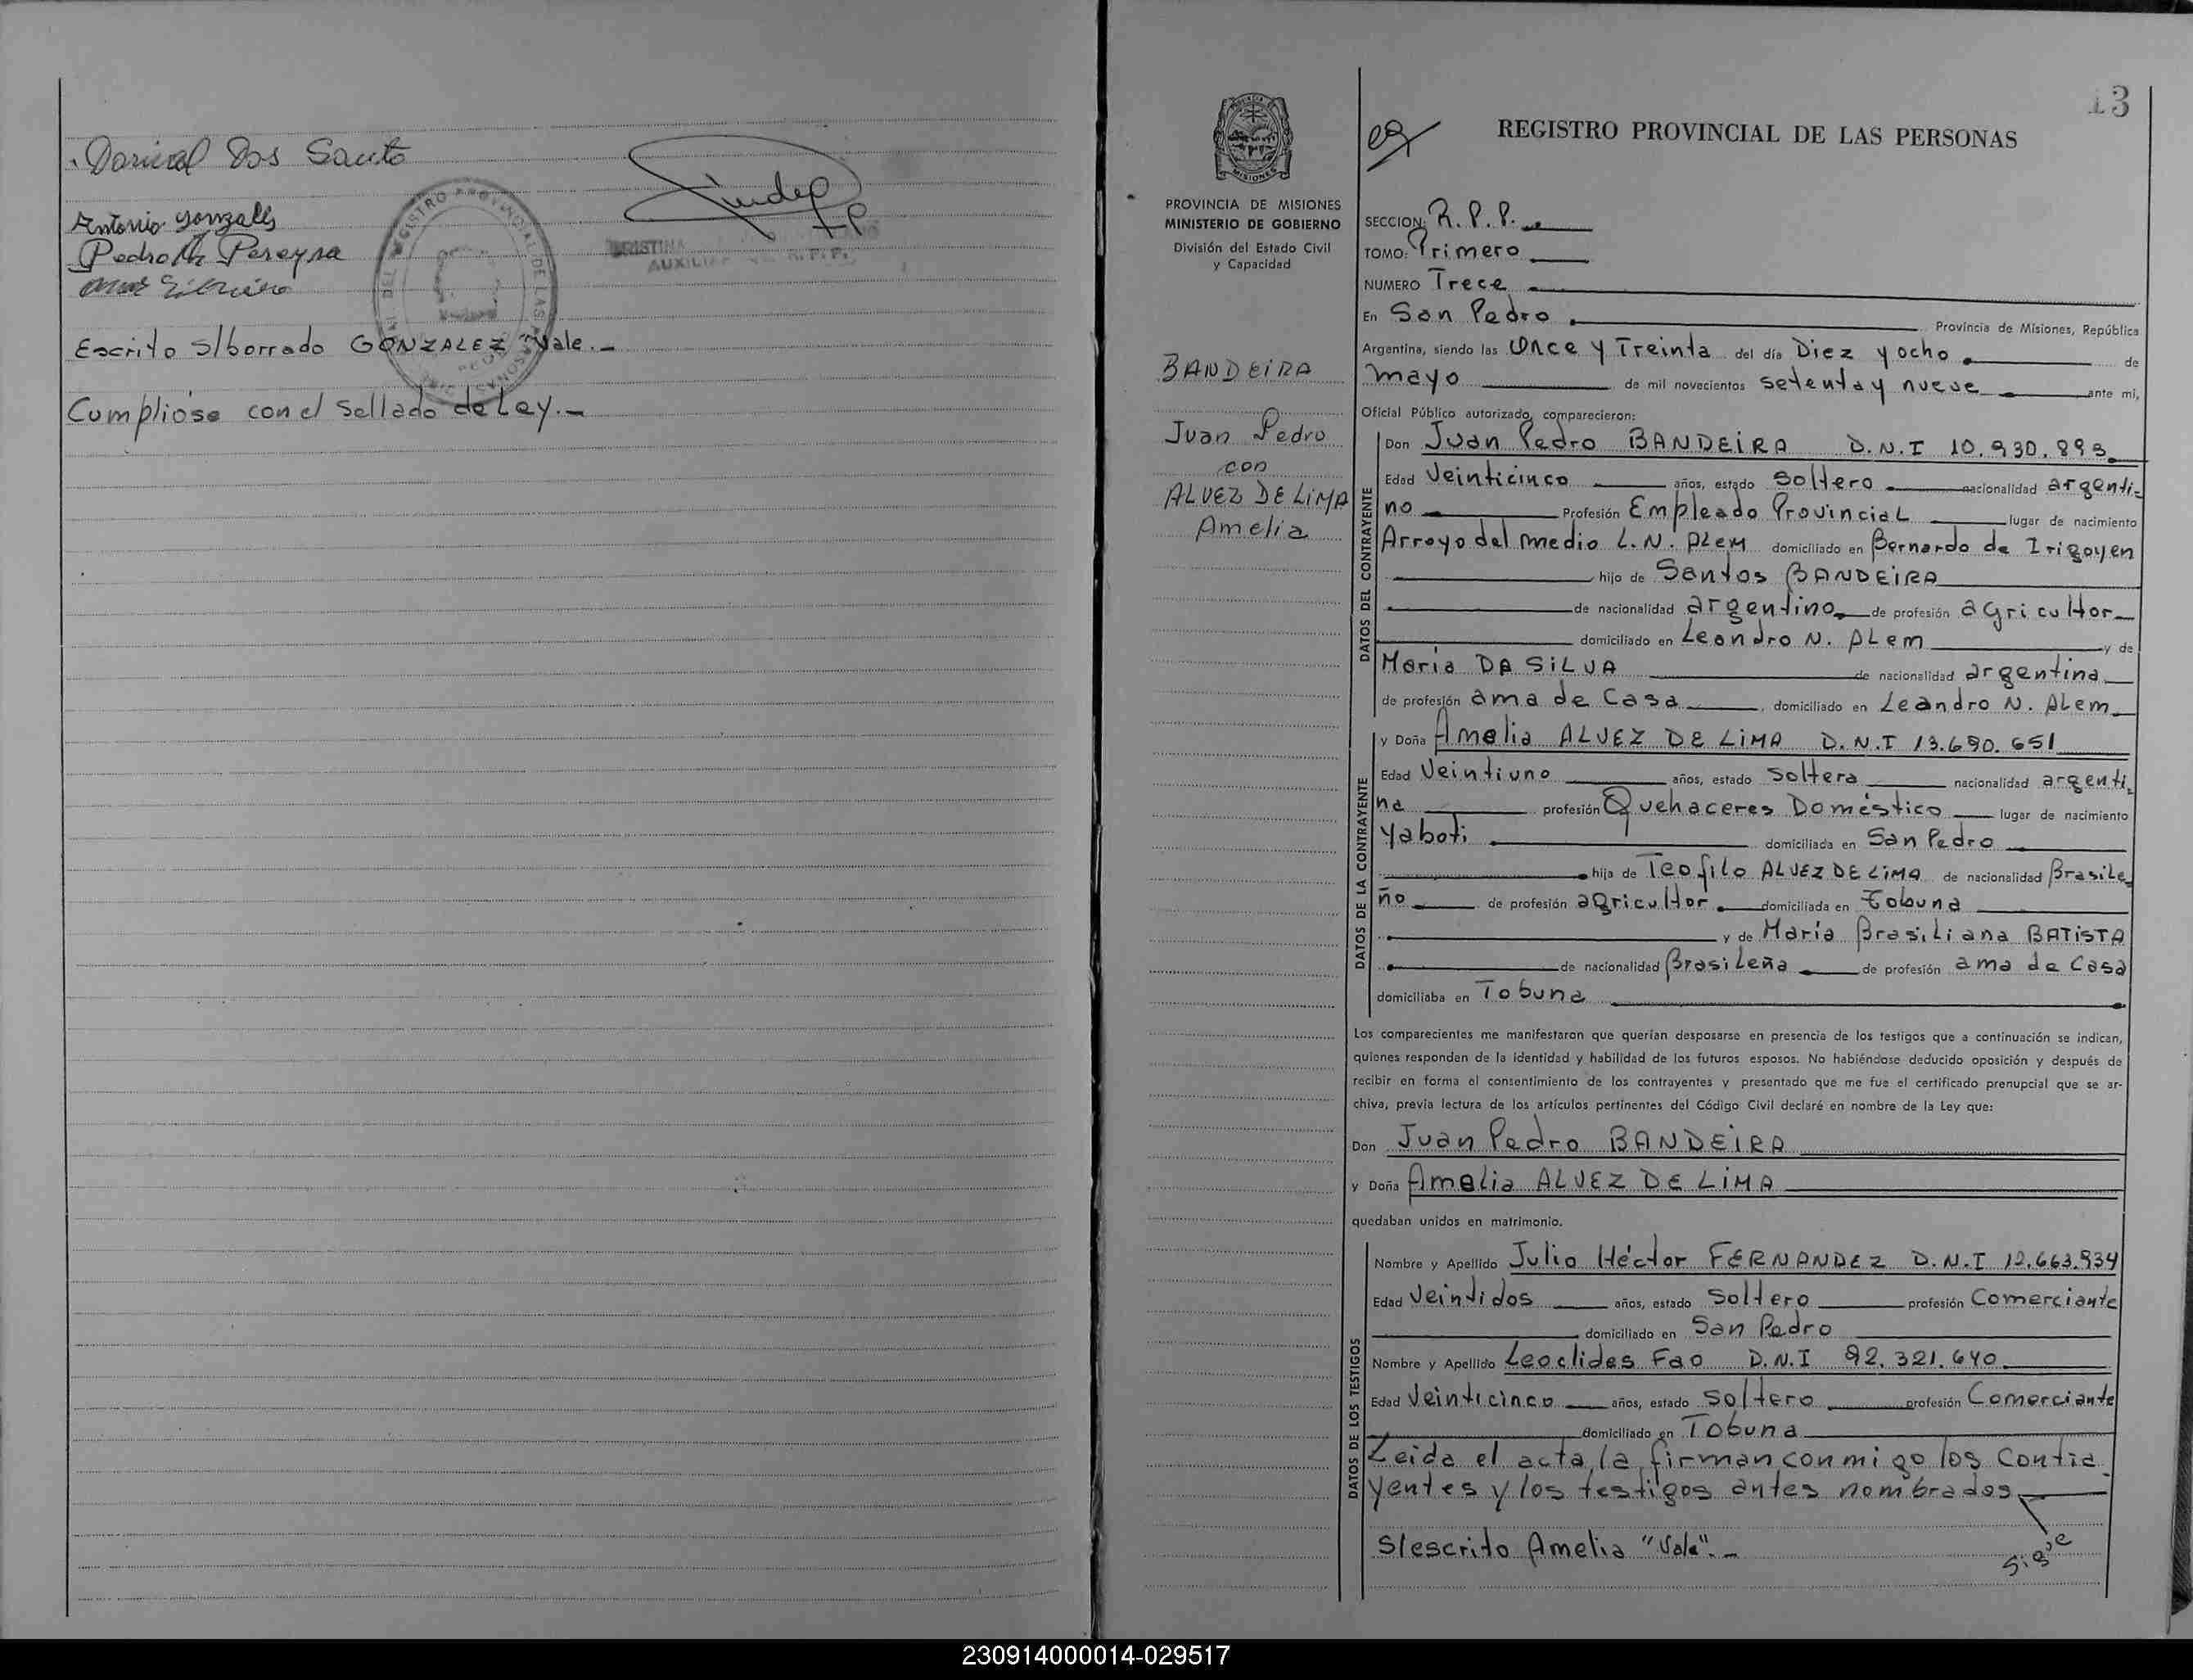 Dos Santo
Antonio Gonzalez
Pedro Pereyra
Escrito s/borrado GONZALEZ "Vale.-
Cumpliose con el Sellado de Ley.-
REGISTRO PROVINCIAL DE LAS PERSONAS
AUXILIAR R.P.P.
13
PROVINCIA DE MISIONES
MINISTERIO DE GOBIERNO
División del Estado Civil
y Capacidad
BANDEIRA
Juan Pedro
con
ALVEZ DE LiMA
Amelia
REGISTRO PROVINCIAL DE LAS PERSONAS
SECCION: R.P.P.
TOMO: Primero
NUMERO Trece
En San Pedro Provincia de Misiones, República
Argentina, siendo las Once y Treinta del día Diez y ocho de
mayo de mil novecientos setenta y nueve ante mi,
Oficial Público autorizado, comparecieron:
DATOS DEL CONTRAYENTE
Don Juan Pedro BANDEiRA D.N.I 10.930.893
Edad Veinticinco años, estado Soltero nacionalidad argenti-
no Profesión Empleado Provincial lugar de nacimiento
Arroyo del medio L.N. ALEM domiciliado en Bernardo de Irigoyen
hijo de Santos BANDEiRA
de nacionalidad argentino de profesión agricultor
domiciliado en Leandro N. ALem y de
Maria DA SiLVA de nacionalidad argentina
de profesión ama de Casa domiciliado en Leandro N. ALem
DATOS DE LA CONTRAYENTE
y Doña Amelia ALVEZ DE LiMA D.N.I 13.690.651
Edad Veintiuno años, estado Soltera nacionalidad argenti-
na profesión Quehaceres Doméstico lugar de nacimiento
Yaboti domiciliada en San Pedro
hija de Teofilo ALVEZ DE LiMA de nacionalidad Brasile-
ño de profesión agricultor domiciliada en Tobuna
y de María Brasiliana BATiSTA
de nacionalidad Brasileña de profesión ama de Casa
domiciliaba en Tobuna
Los comparecientes me manifestaron que querían desposarse en presencia de los testigos que a continuación se indican,
quienes responden de la identidad y habilidad de los futuros esposos. No habiéndose deducido oposición y después de
recibir en forma el consentimiento de los contrayentes y presentado que me fue el certificado prenupcial que se ar-
chiva, previa lectura de los artículos pertinentes del Código Civil declaré en nombre de la Ley que:
Don Juan Pedro BANDEiRA
y Doña Amelia ALVEZ DE LiMA
quedaban unidos en matrimonio.
DATOS DE LOS TESTIGOS
Nombre y Apellido Julio Héctor FERNANDEZ D.N.I 12.663.934
Edad Veintidos años, estado Soltero profesión Comerciante
domiciliado en San Pedro
Nombre y Apellido Leoclides Fao D.N.I 92.321.640
Edad Veinticinco años, estado Soltero profesión Comerciante
domiciliado en Tobuna
Leida el acta, la firman conmigo los Contra-
yentes y los testigos antes nombrados
S/escrito Amelia "Vale".-
Sigue
230914000014-029517